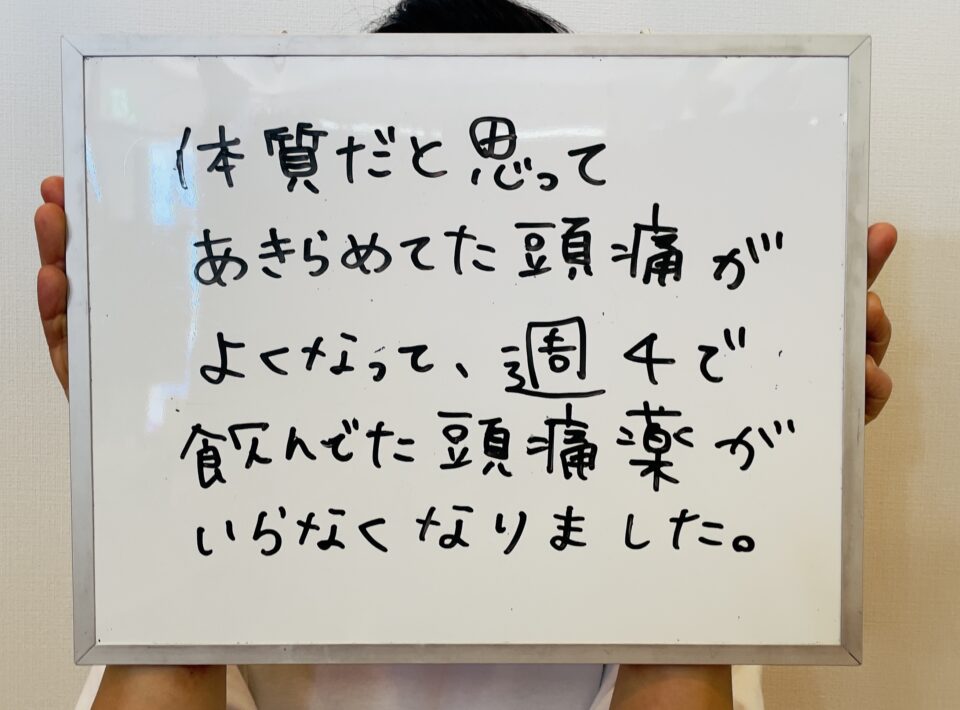 体質だと思って
あきらめてた頭痛が
よくなって、週4で
飲んでた頭痛薬が
いらなくなりました。